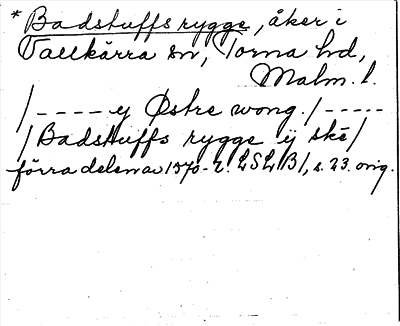 * Badstuffs rygge, åker i
Vallkärra sn, Torna hd,
Malm. l.
/ - - - - y Østre wong. / - - - - -
/ Badstuffs rygge ÿ skē /
förra delen av 1570-t. LSLB1, s. 23. orig.